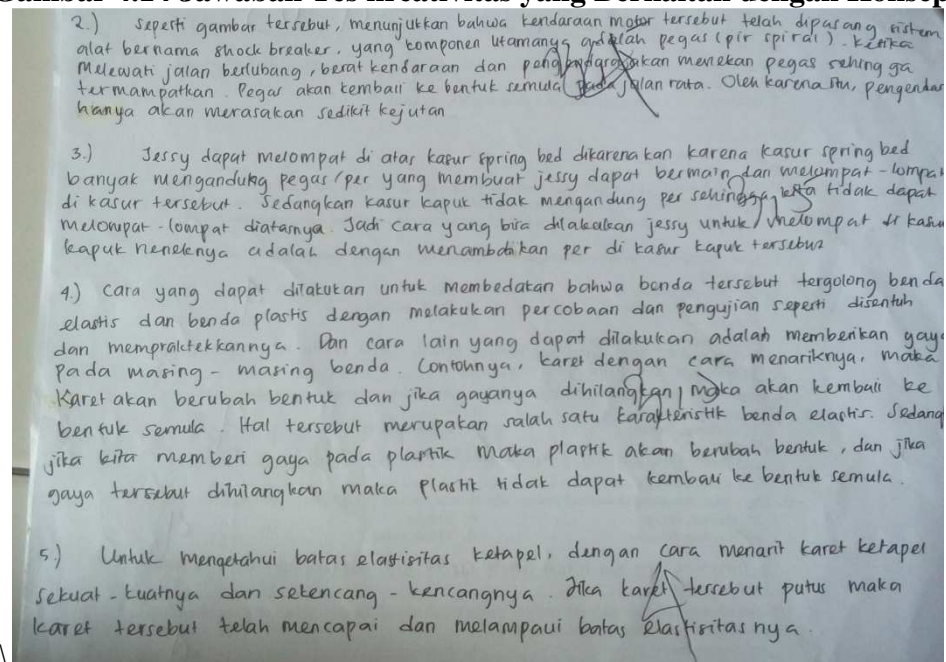 Gambar 4.14 Jawaban Tes Kreativitas yang Berkaitan dengan Konsep
2.) Seperti gambar tersebut, menunjukkan bahwa kendaraan motor tersebut telah dipasang sistem
alat bernama shock breaker, yang komponen utamanya adalah pegas (pir spiral). Ketika
Melewati jalan berlubang, berat kendaraan dan akan menekan pegas sehingga
termampatkan. Pegas akan kembali ke bentuk semula pada jalan rata. Oleh karena itu, pengendar
hanya akan merasakan sedikit kejutan
3.) Jessy dapat melompat di atas kasur spring bed dikarenakan karena kasur spring bed
banyak mengandung pegas/per yang membuat jessy dapat bermain dan melompat-lompat
di kasur tersebut. Sedangkan kasur kapuk tidak mengandung per sehingga kita tidak dapat
melompat-lompat diatasnya. Jadi cara yang bisa dilakukan jessy untuk melompat di kasur
kapuk neneknya adalah dengan menambahkan per di kasur kapuk tersebut
4.) Cara yang dapat dilakukan untuk Membedakan bahwa benda tersebut tergolong benda
elastis dan benda plastis dengan melakukan percobaan dan pengujian seperti disentuh
dan mempraktekkannya. Dan cara lain yang dapat dilakukan adalah memberikan gaya
Pada masing-masing benda. Contohnya, karet dengan cara menariknya, maka
Karet akan berubah bentuk dan jika gayanya dihilangkan, maka akan kembali ke
bentuk semula. Hal tersebut merupakan salah satu karakteristik benda elastis. Sedang
jika kita memberi gaya pada plastik maka plastik akan berubah bentuk, dan jika
gaya tersebut dihilangkan maka Plastik tidak dapat kembali ke bentuk semula.
5.) Untuk mengetahui batas elastisitas ketapel, dengan cara menarik karet ketapel
sekuat-kuatnya dan sekencang-kencangnya. Jika karet tersebut putus maka
karet tersebut telah mencapai dan melampaui batas elastisitasnya.
\